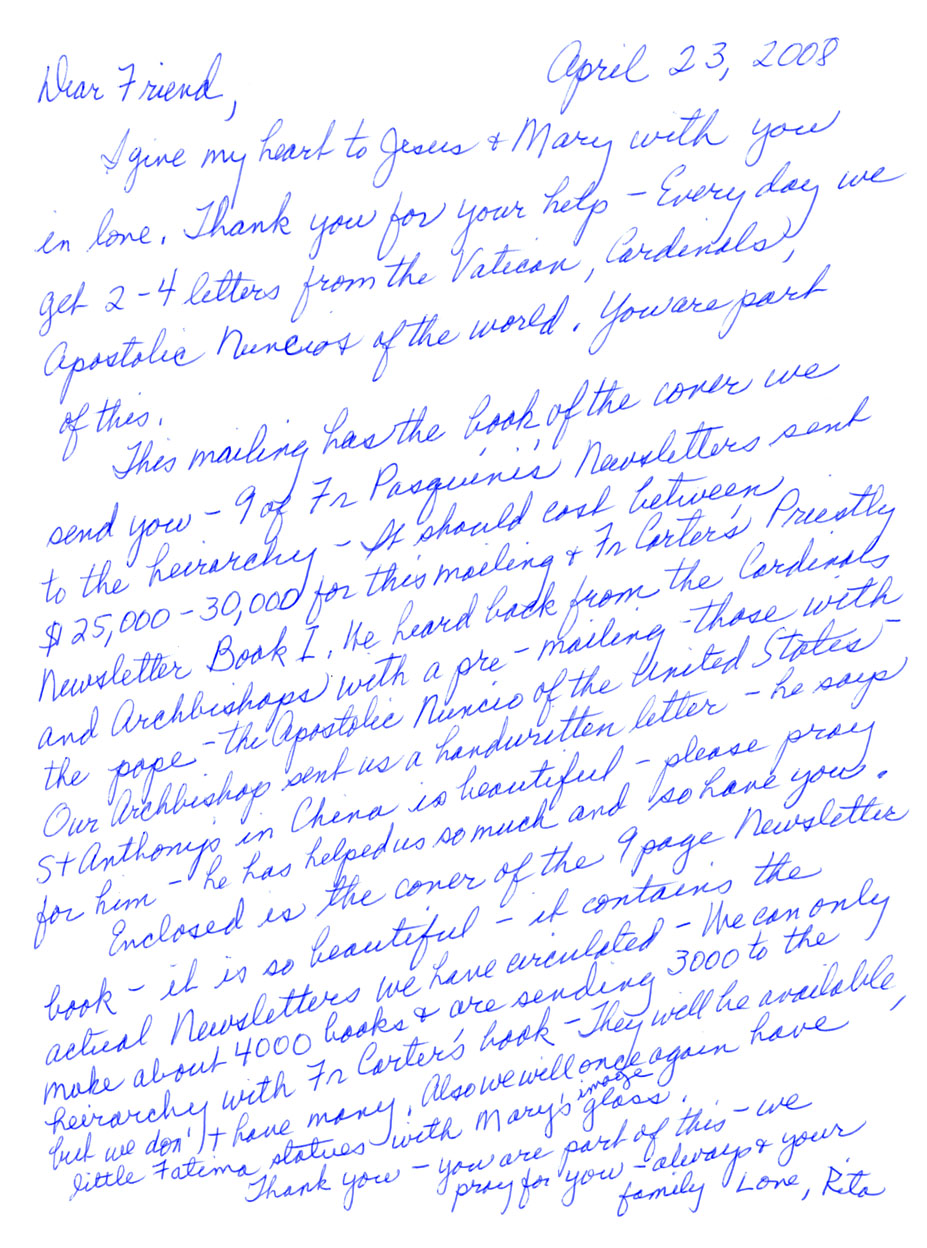 April 23, 2008
Dear Friend,
I give my heart to Jesus & Mary with you
in love. Thank you for your help - Every day we
get 2-4 letters from the Vatican, Cardinals,
Apostolic Nuncios of the world. You are part
of this.
This mailing has the book of the cover we
send you - 9 of Fr Pasquini's Newsletters sent
to the heirarchy - It should cost between
$25,000-30,000 for this mailing & Fr Carter's Priestly
Newsletter Book I. We heard back from the Cardinals
and Archbishops with a pre-mailing - those with
the pope - the Apostolic Nuncio of the United States -
Our Archbishop sent us a handwritten letter - he says
St Anthony's in China is beautiful - please pray
for him - he has helped us so much and so have you.
Enclosed is the cover of the 9 page Newsletter
book - it is so beautiful - it contains the
actual Newsletters we have circulated - We can only
make about 4000 books & are sending 3000 to the
heirarchy with Fr Carter's book - They will be available,
but we don't have many. Also we will once again have
little Fatima statues with Mary's image glass.
Thank you - you are part of this - we
pray for you - always & your
family Love, Rita